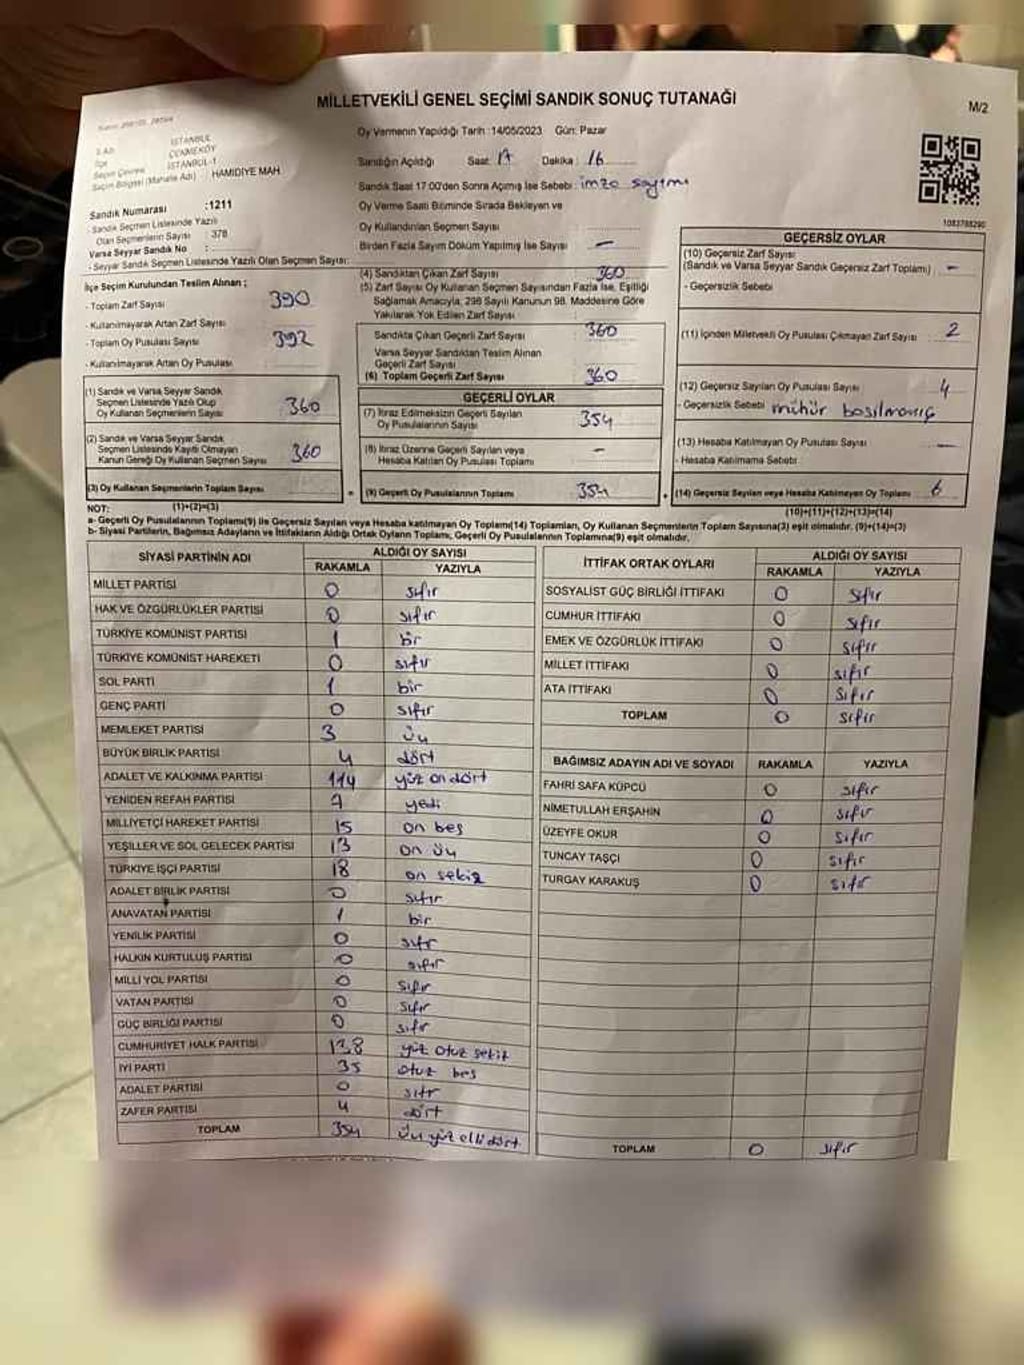 MİLLETVEKİLİ GENEL SEÇİMİ SANDIK SONUÇ TUTANAĞI
M/2
Oy Vermenin Yapıldığı Tarih : 14/05/2023 Gün: Pazar
İSTANBUL
ÇEKMEKÖY
İSTANBUL-1
Seçim Bölgesi (Mahalle Adı) : HAMİDİYE MAH.
Sandığın Açıldığı Saat: 17 Dakika : 16
Sandık Saat 17:00'den Sonra Açılmış İse Sebebi : imza sayımı
Oy Verme Saati Bitiminde Sırada Bekleyen ve
Oy Kullandırılan Seçmen Sayısı
Birden Fazla Sayım Döküm Yapılmış İse Sayısı -
1083788290
Sandık Numarası :1211
- Sandık Seçmen Listesinde Yazılı
Olan Seçmenlerin Sayısı : 378
Varsa Seyyar Sandık No :
- Seyyar Sandık Seçmen Listesinde Yazılı Olan Seçmen Sayısı:
İlçe Seçim Kurulundan Teslim Alınan ;
- Toplam Zarf Sayısı 390
- Kullanılmayarak Artan Zarf Sayısı
- Toplam Oy Pusulası Sayısı 392
- Kullanılmayarak Artan Oy Pusulası
(1) Sandık ve Varsa Seyyar Sandık
Seçmen Listesinde Yazılı Olup
Oy Kullanan Seçmenlerin Sayısı 360
(2) Sandık ve Varsa Seyyar Sandık
Seçmen Listesinde Kayıtlı Olmayan
Kanun Gereği Oy Kullanan Seçmen Sayısı 360
(3) Oy Kullanan Seçmenlerin Toplam Sayısı
(1)+(2)=(3)
(4) Sandıktan Çıkan Zarf Sayısı 360
(5) Zarf Sayısı Oy Kullanan Seçmen Sayısından Fazla İse, Eşitliği
Sağlamak Amacıyla; 298 Sayılı Kanunun 98. Maddesine Göre
Yakılarak Yok Edilen Zarf Sayısı
Sandıkta Çıkan Geçerli Zarf Sayısı 360
Varsa Seyyar Sandıktan Teslim Alınan
Geçerli Zarf Sayısı
(6) Toplam Geçerli Zarf Sayısı 360
GEÇERLİ OYLAR
(7) İtiraz Edilmeksizin Geçerli Sayılan
Oy Pusulalarının Sayısı 354
(8) İtiraz Üzerine Geçerli Sayılan veya
Hesaba Katılan Oy Pusulası Toplamı -
= (9) Geçerli Oy Pusulalarının Toplamı 354
GEÇERSİZ OYLAR
(10) Geçersiz Zarf Sayısı
(Sandık ve Varsa Seyyar Sandık Geçersiz Zarf Toplamı) -
- Geçersizlik Sebebi
(11) İçinden Milletvekili Oy Pusulası Çıkmayan Zarf Sayısı 2
(12) Geçersiz Sayılan Oy Pusulası Sayısı 4
- Geçersizlik Sebebi mühür basılmamış
(13) Hesaba Katılmayan Oy Pusulası Sayısı -
- Hesaba Katılmama Sebebi
+ (14) Geçersiz Sayılan veya Hesaba Katılmayan Oy Toplamı 6
(10)+(11)+(12)+(13)=(14)
NOT:
a- Geçerli Oy Pusulalarının Toplamı(9) ile Geçersiz Sayılan veya Hesaba katılmayan Oy Toplamı(14) Toplamları, Oy Kullanan Seçmenlerin Toplam Sayısına(3) eşit olmalıdır. (9)+(14)=(3)
b- Siyasi Partilerin, Bağımsız Adayların ve İttifakların Aldığı Ortak Oyların Toplamı; Geçerli Oy Pusulalarının Toplamına(9) eşit olmalıdır.
SİYASİ PARTİNİN ADI ALDIĞI OY SAYISI
RAKAMLA YAZIYLA
MİLLET PARTİSİ 0 sıfır
HAK VE ÖZGÜRLÜKLER PARTİSİ 0 sıfır
TÜRKİYE KOMÜNİST PARTİSİ 1 bir
TÜRKİYE KOMÜNİST HAREKETİ 0 sıfır
SOL PARTİ 1 bir
GENÇ PARTİ 0 sıfır
MEMLEKET PARTİSİ 3 üç
BÜYÜK BİRLİK PARTİSİ 4 dört
ADALET VE KALKINMA PARTİSİ 114 yüz on dört
YENİDEN REFAH PARTİSİ 7 yedi
MİLLİYETÇİ HAREKET PARTİSİ 15 on beş
YEŞİLLER VE SOL GELECEK PARTİSİ 13 on üç
TÜRKİYE İŞÇİ PARTİSİ 18 on sekiz
ADALET BİRLİK PARTİSİ 0 sıfır
ANAVATAN PARTİSİ 1 bir
YENİLİK PARTİSİ 0 sıfır
HALKIN KURTULUŞ PARTİSİ 0 sıfır
MİLLİ YOL PARTİSİ 0 sıfır
VATAN PARTİSİ 0 sıfır
GÜÇ BİRLİĞİ PARTİSİ 0 sıfır
CUMHURİYET HALK PARTİSİ 138 yüz otuz sekiz
İYİ PARTİ 35 otuz beş
ADALET PARTİSİ 0 sıfır
ZAFER PARTİSİ 4 dört
TOPLAM 354 üç yüz elli dört
İTTİFAK ORTAK OYLARI ALDIĞI OY SAYISI
RAKAMLA YAZIYLA
SOSYALİST GÜÇ BİRLİĞİ İTTİFAKI 0 sıfır
CUMHUR İTTİFAKI 0 sıfır
EMEK VE ÖZGÜRLÜK İTTİFAKI 0 sıfır
MİLLET İTTİFAKI 0 sıfır
ATA İTTİFAKI 0 sıfır
TOPLAM 0 sıfır
BAĞIMSIZ ADAYIN ADI VE SOYADI RAKAMLA YAZIYLA
FAHRİ SAFA KÜPCÜ 0 sıfır
NİMETULLAH ERŞAHİN 0 sıfır
ÜZEYFE OKUR 0 sıfır
TUNCAY TAŞÇI 0 sıfır
TURGAY KARAKUŞ 0 sıfır
TOPLAM 0 sıfır